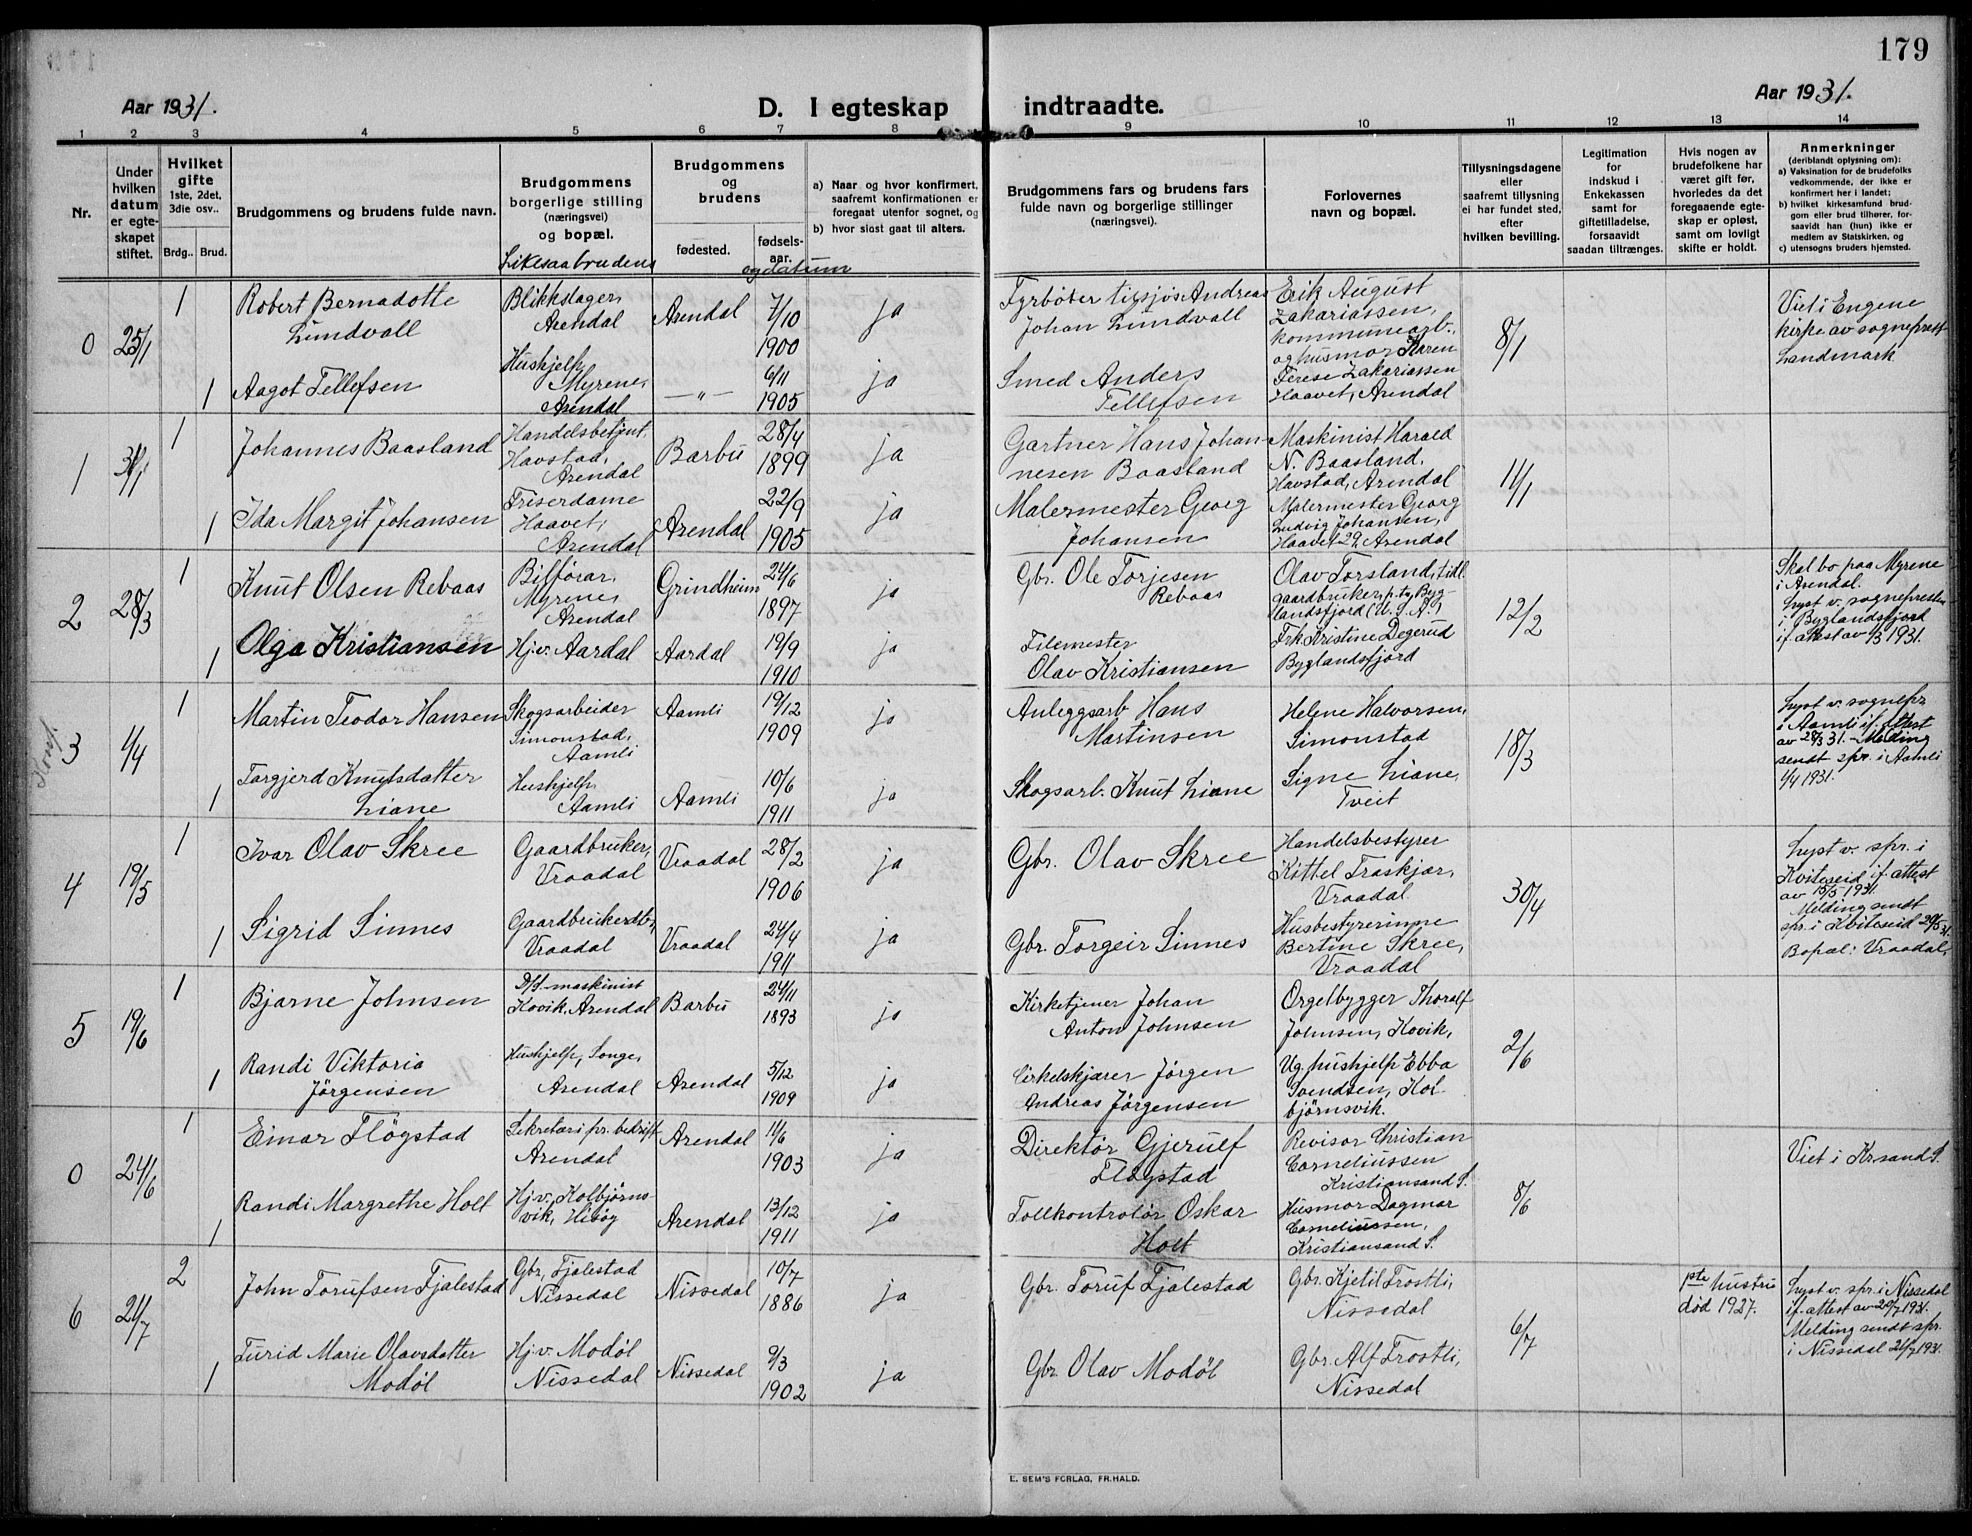 179
Aar 1931.
D. I egteskap indtraadte.
Aar 1931.
1 2 3 4 5 6 7 8 9 10 11 12 13 14
Nr.
Under
hvilken
datum
er egte-
skapet
stiftet.
Hvilket
gifte
1ste, 2det,
3die osv..
Brdg.. Brud.
Brudgommens og brudens fulde navn.
Brudgommens
borgerlige stilling
(næringsvei)
og bopæl.
Likesaa brudens
Brudgommens
og
brudens
fødested.
fødsels-
aar.
og datum
a) Naar og hvor konfirmert,
saafremt konfirmationen er
foregaat utenfor sognet, og
b) hvor sidst gaat til alters.
Brudgommens fars og brudens fars
fulde navn og borgerlige stillinger
(næringsvei).
Forlovernes
navn og bopæl.
Tillysningsdagene
eller
saafremt tillysning
ei har fundet sted,
efter
hvilken bevilling.
Legitimation
for
indskud i
Enkekassen
samt for
giftetilladelse,
forsaavidt
saadan tiltrænges.
Hvis nogen av
brudefolkene har
været gift før,
hvorledes da det
foregaaende egte-
skap er opløst,
samt om lovligt
skifte er holdt.
Anmerkninger
(deriblandt oplysning om):
a) Vaksination for de brudefolks
vedkommende, der ikke er
konfirmert her i landet;
b) hvilket kirkesamfund brud-
gom eller brud tilhører, for-
saavidt han (hun) ikke er
medlem av Statskirken, og
c) utensogns bruders hjemsted.
0 25/1
1 Robert Bernadotte
Lundvall
Blikkslager,
Arendal
Arendal
7/10
1900
ja
Fyrbøter tilsjøs Andreas
Johan Lundvall
Erik August
Zakariassen,
kommunearb.,
og husmor Karen
Terese Zakariassen
Haavet, Arendal
8/1
Viet i Engene
kirke av sogneprest
Landmark
1 Aagot Tellefsen
Hushjelp,
Myrene,
Arendal
— " —
6/11
1905
ja
Smed Anders
Tellefsen
1 31/1
1 Johannes Baasland
Handelsbetjent,
Havstad,
Arendal
Barbu
28/4
1899
ja
Gartner Hans Johan-
nesen Baasland
Maskinist Harald
N. Baasland,
Havstad, Arendal
Malermester Georg
Ludvig Johansen,
Haavet 29, Arendal
11/1
1 Ida Margit Johansen
Friserdame
Haavet,
Arendal
Arendal
22/9
1905
ja
Malermester Georg
Johansen
2 28/3
1 Knut Olsen Rebaas
Bilførar,
Myrene,
Arendal
Grindheim
24/6
1897
ja
Gbr. Ole Torjesen
Rebaas
Olav Torsland, tidl.
gaardbruker, p.t. Byg-
landsfjord (U.S.A.)
Frk. Kristine Degerud
Byglandsfjord
12/2
Skal bo paa Myrene
i Arendal.
Lyst v. sognepresten
i Byglandsfjord
if. attest av 1/3 1931.
1 Olga Kristiansen
Hj.v. Aardal
Aardal
19/9
1910
ja
Filemester
Olav Kristiansen
3 1/4
1 Martin Teodor Hansen
Skogsarbeider
Simonstad,
Aamli
Aamli
19/12
1909
ja
Anleggsarb. Hans
Martinsen
Helene Halvorsen,
Simonstad
Signe Liane,
Tveit
18/3
Lyst v. sognepr.
i Aamli if. attest
av 28/3 31. - Melding
sendt spr. i Aamli
1/4 1931.
1 Torgjerd Knutsdatter
Liane
Hushjelp,
Aamli
Aamli
10/6
1911
ja
Skogsarb. Knut Liane
4 19/5
1 Ivar Olav Skree
Gaardbruker,
Vraadal
Vraadal
28/2
1906
ja
Gbr. Olav Skree
Handelsbestyrer
Kittel Traskjær,
Vraadal.
Husbestyrerinne
Bertine Skree,
Vraadal
30/4
Lyst v. spr. i
Kviteseid if. attest
av 15/5 1931.
Melding sendt
spr. i Kviteseid 20/5 31.
Bopæl: Vraadal,
1 Sigrid Sinnes
Gaardbrukerdtr.,
Vraadal
Vraadal
24/4
1911
ja
Gbr. Torgeir Sinnes
5 19/6
1 Bjarne Johnsen
D/S-maskinist
Kovik, Arendal
Barbu
24/11
1893
ja
Kirketjener Johan
Anton Johnsen
Orgelbygger Thoralf
Johnsen, Kovik,
Ug. hushjelp Ebba
Svendsen, Kol-
bjørnsvik.
2/6
1 Randi Viktoria
Jørgensen
Hushjelp, Songe,
Arendal
Arendal
5/12
1909
ja
Cirkelskjærer Jørgen
Andreas Jørgensen
0 24/6
1 Einar Fløgstad
Sekretær i pr. bedrift
Arendal
Arendal
11/6
1903
ja
Direktør Gjerulf
Fløgstad
Revisor Christian
Corneliussen
Kristiansand S.
Husmor Dagmar
Corneliussen,
Kristiansand S.
8/6
Viet i Krsand S.
1 Randi Margrethe Holt
Hj.v. Kolbjørns-
vik, Hisøy
Arendal
13/12
1911
ja
Tollkontrolør Oskar
Holt
6 21/7
2 John Torufsen Fjalestad
Gbr., Fjalestad
Nissedal
Nissedal
10/7
1886
ja
Gbr. Toruf Fjalestad
Gbr. Kjetil Trostli,
Nissedal
Gbr. Alf Trostli,
Nissedal
6/7
1ste hustru
død 1927.
Lyst v. spr. i Nissedal
if. attest av 20/7 1931.
Melding sendt spr.
i Nissedal 21/7 1931.
1 Turid Marie Olavsdatter
Modøl
Hj.v. Modøl
Nissedal
Nissedal
9/3
1902
ja
Gbr. Olav Modøl
E. SEM'S FORLAG, FR.HALD.